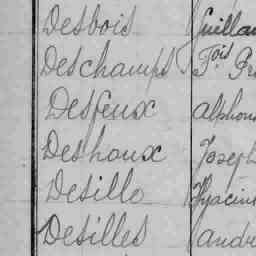 Desbois Guillau
Deschamps F.ois Pr
Desfeux Alphons
Deshoux Joseph
Desillo Hyacin
Desilles André